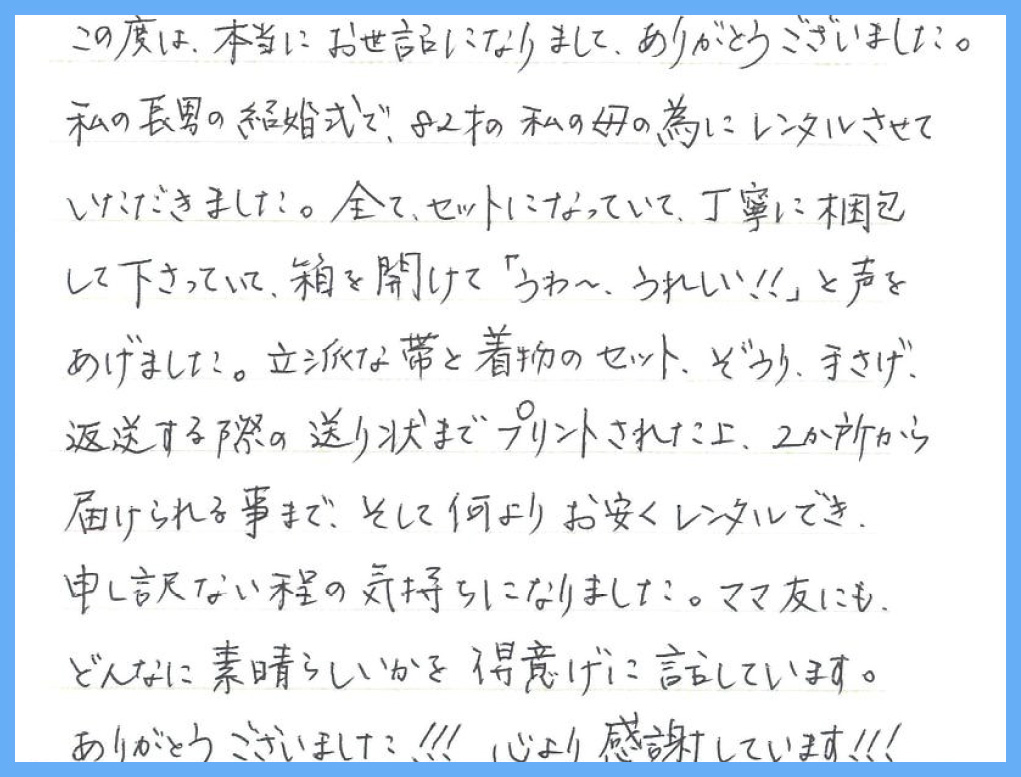 この度は、本当にお世話になりまして、ありがとうございました。
私の長男の結婚式で、82才の私の母の為にレンタルさせて
いただきました。全て、セットになっていて、丁寧に梱包
して下さっていて、箱を開けて「うわ～、うれしい!!」と声を
あげました。立派な帯と着物のセット、ぞうり、手さげ、
返送する際の送り状までプリントされた上、2か所から
届けられる事まで、そして何よりお安くレンタルでき、
申し訳ない程の気持ちになりました。ママ友にも、
どんなに素晴らしいかを得意げに話しています。
ありがとうございました!!! 心より感謝しています!!!